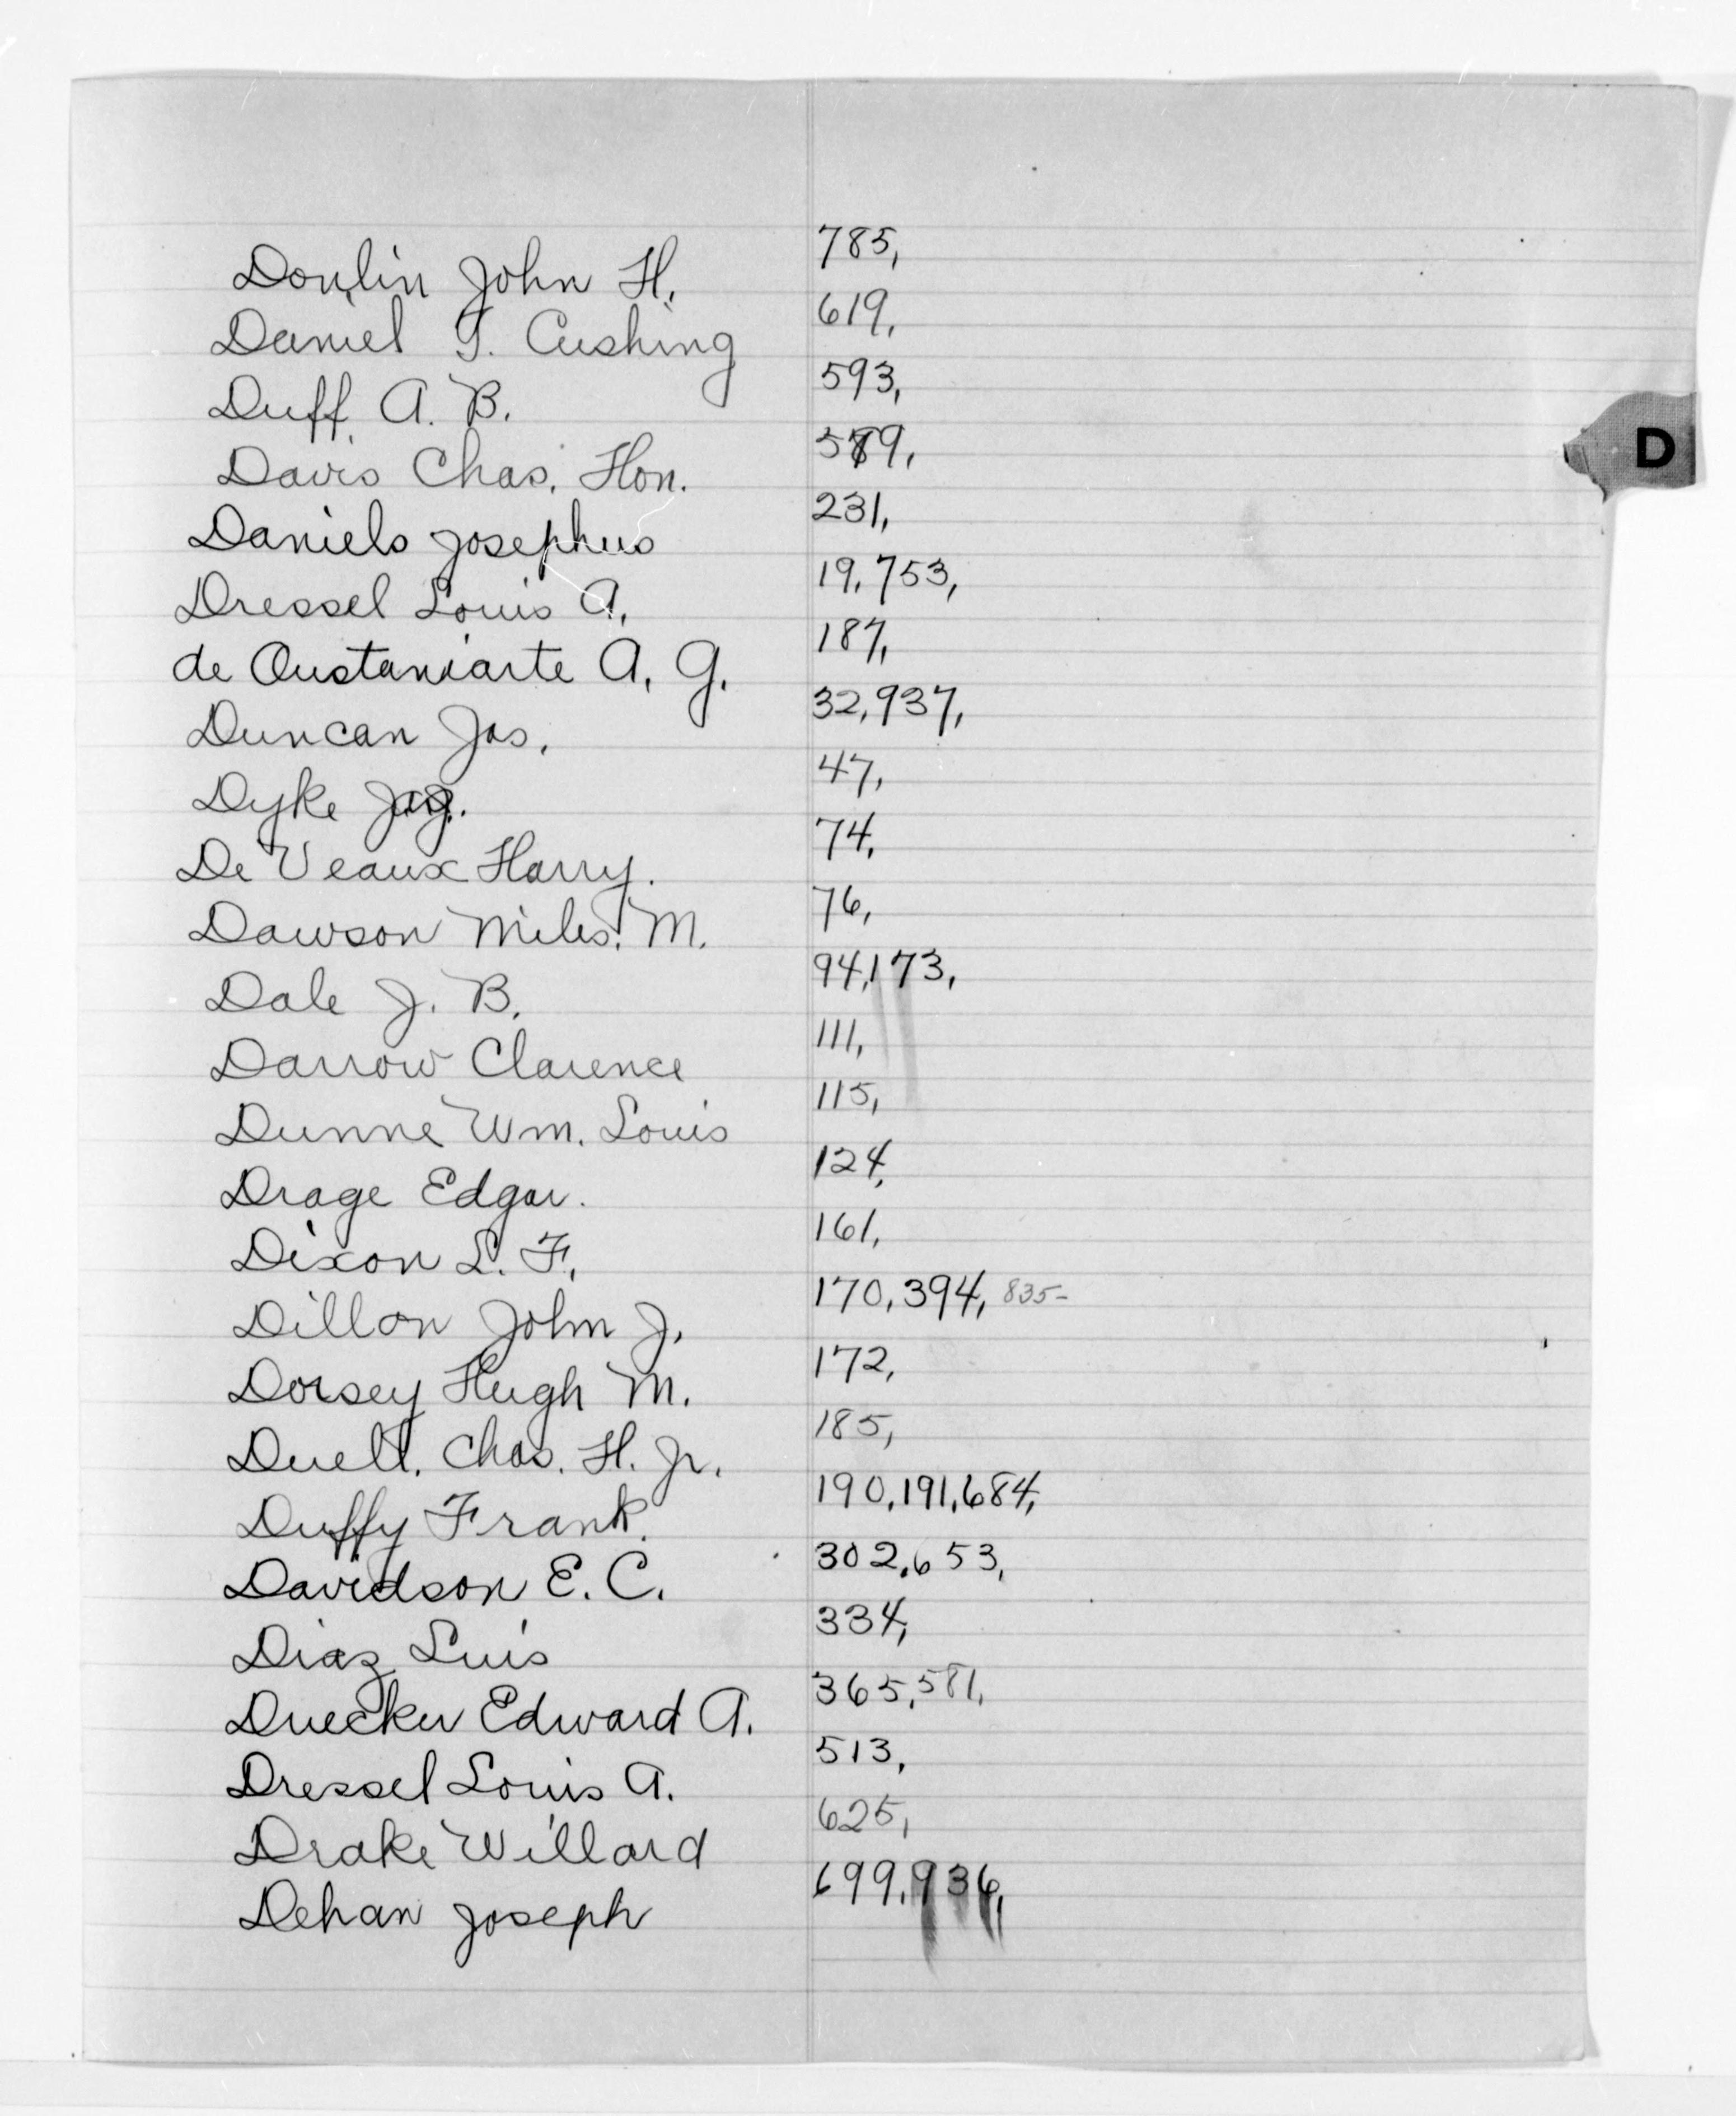 Donlin John H. 785,
Daniel T. Cushing 619,
Duff, A. B. 593,
Davis Chas. Hon. 579,
Daniels Josephus 231,
Dressel Louis A. 19, 753,
de Oustaniarte A. G. 187,
Duncan Jas. 32, 937,
Dyke 47,
De Veaux Harry. 74,
Dawson Miles. M. 76,
Dale J. B. 94, 173,
Darrow Clarence 111,
Dunne Wm. Louis 115,
Drage Edgar. 124,
Dixon L. F. 161,
Dillon John J. 170, 394, 835-
Dorsey Hugh M. 172,
Duell. Chas. H. Jr. 185,
Duffy Frank. 190, 191, 684,
Davidson E. C. 302, 653,
Diaz Luis 334,
Duecker Edward A. 365, 581,
Dressel Louis A. 513,
Drake Willard 625,
Dehan Joseph 699, 936,
D